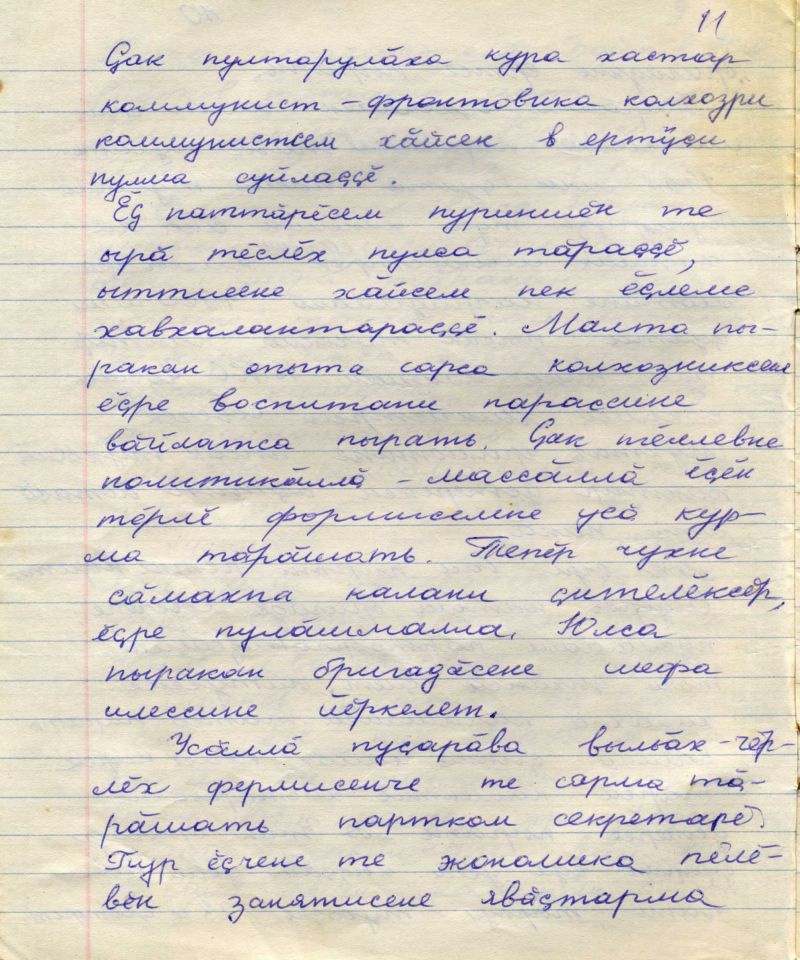 11
Ҫак пултарулӑха кура хастар
коммунист - фронтовика колхозри
коммунистсем хӑйсен ертӳҫи
пулма суйлаҫҫӗ.
Ӗҫ паттӑрӗсем пуриншӗн те
ырӑ тӗслӗх пулса тӑраҫҫӗ,
ыттисене хӑйсем пек ӗҫлеме
хавхалантараҫҫӗ. Малта пы-
ракан опыта сарса колхозниксене
ӗҫре воспитани парассине
вӑйлатса пырать. Ҫак тӗллевпе
политикӑллӑ - массӑллӑ ӗҫӗн
тӗрлӗ формисемпе усӑ кур-
ма тӑрӑшать. Тепӗр чухне
сӑмахпа калани ҫителӗксӗр,
ӗҫре пулӑшмалла. Юлса
пыракан бригадӑсене шефа
илессине йӗркелет.
Усӑллӑ пуҫарӑва выльӑх-чӗр-
лӗх фермисенче те сарма тӑ-
рӑшать партком секретарӗ.
Пур ӗҫчене те экономика пӗлӗ-
вӗн занятисене явӑҫтарма